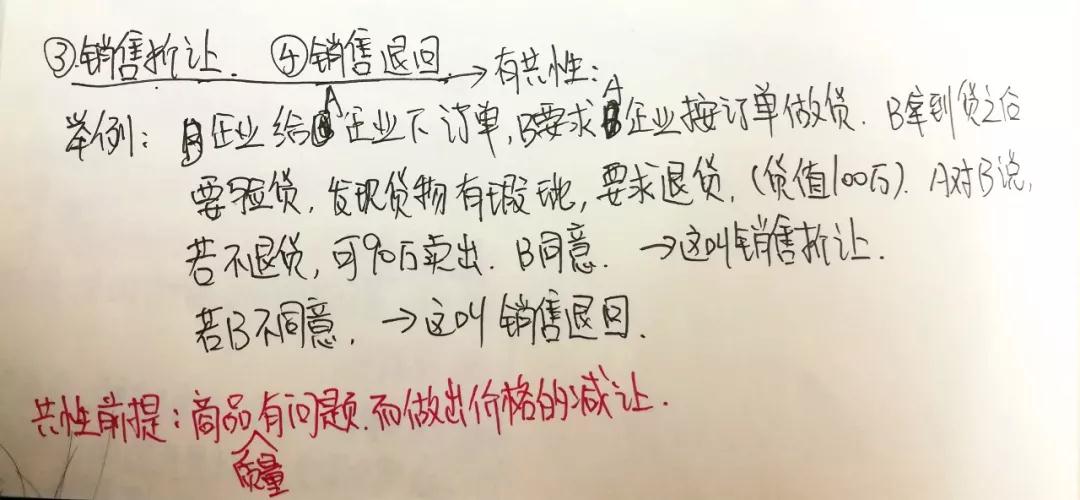 ③销售折让. ④销售退回. →有共性:
举例: B企业给A企业下订单, B要求A企业按订单做货. B拿到货之后
要验货, 发现货物有瑕疵, 要求退货, (货值100万). A对B说,
若不退货, 可90万卖出. B同意. →这叫销售折让.
若B不同意, →这叫销售退回.
共性前提: 商品质量有问题. 而做出价格的减让.